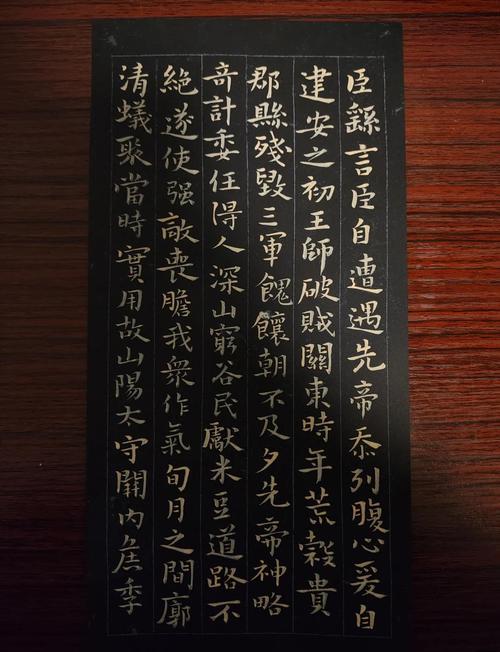 臣繇言臣自遭遇先帝忝列腹心爰自
建安之初王師破賊關東時年荒穀貴
郡縣殘毀三軍餽饟朝不及夕先帝神略
奇計委任得人深山窮谷民獻米豆道路不
絕遂使强敵喪膽我衆作氣旬月之間廓
清蟻聚當時實用故山陽太守關內侯季